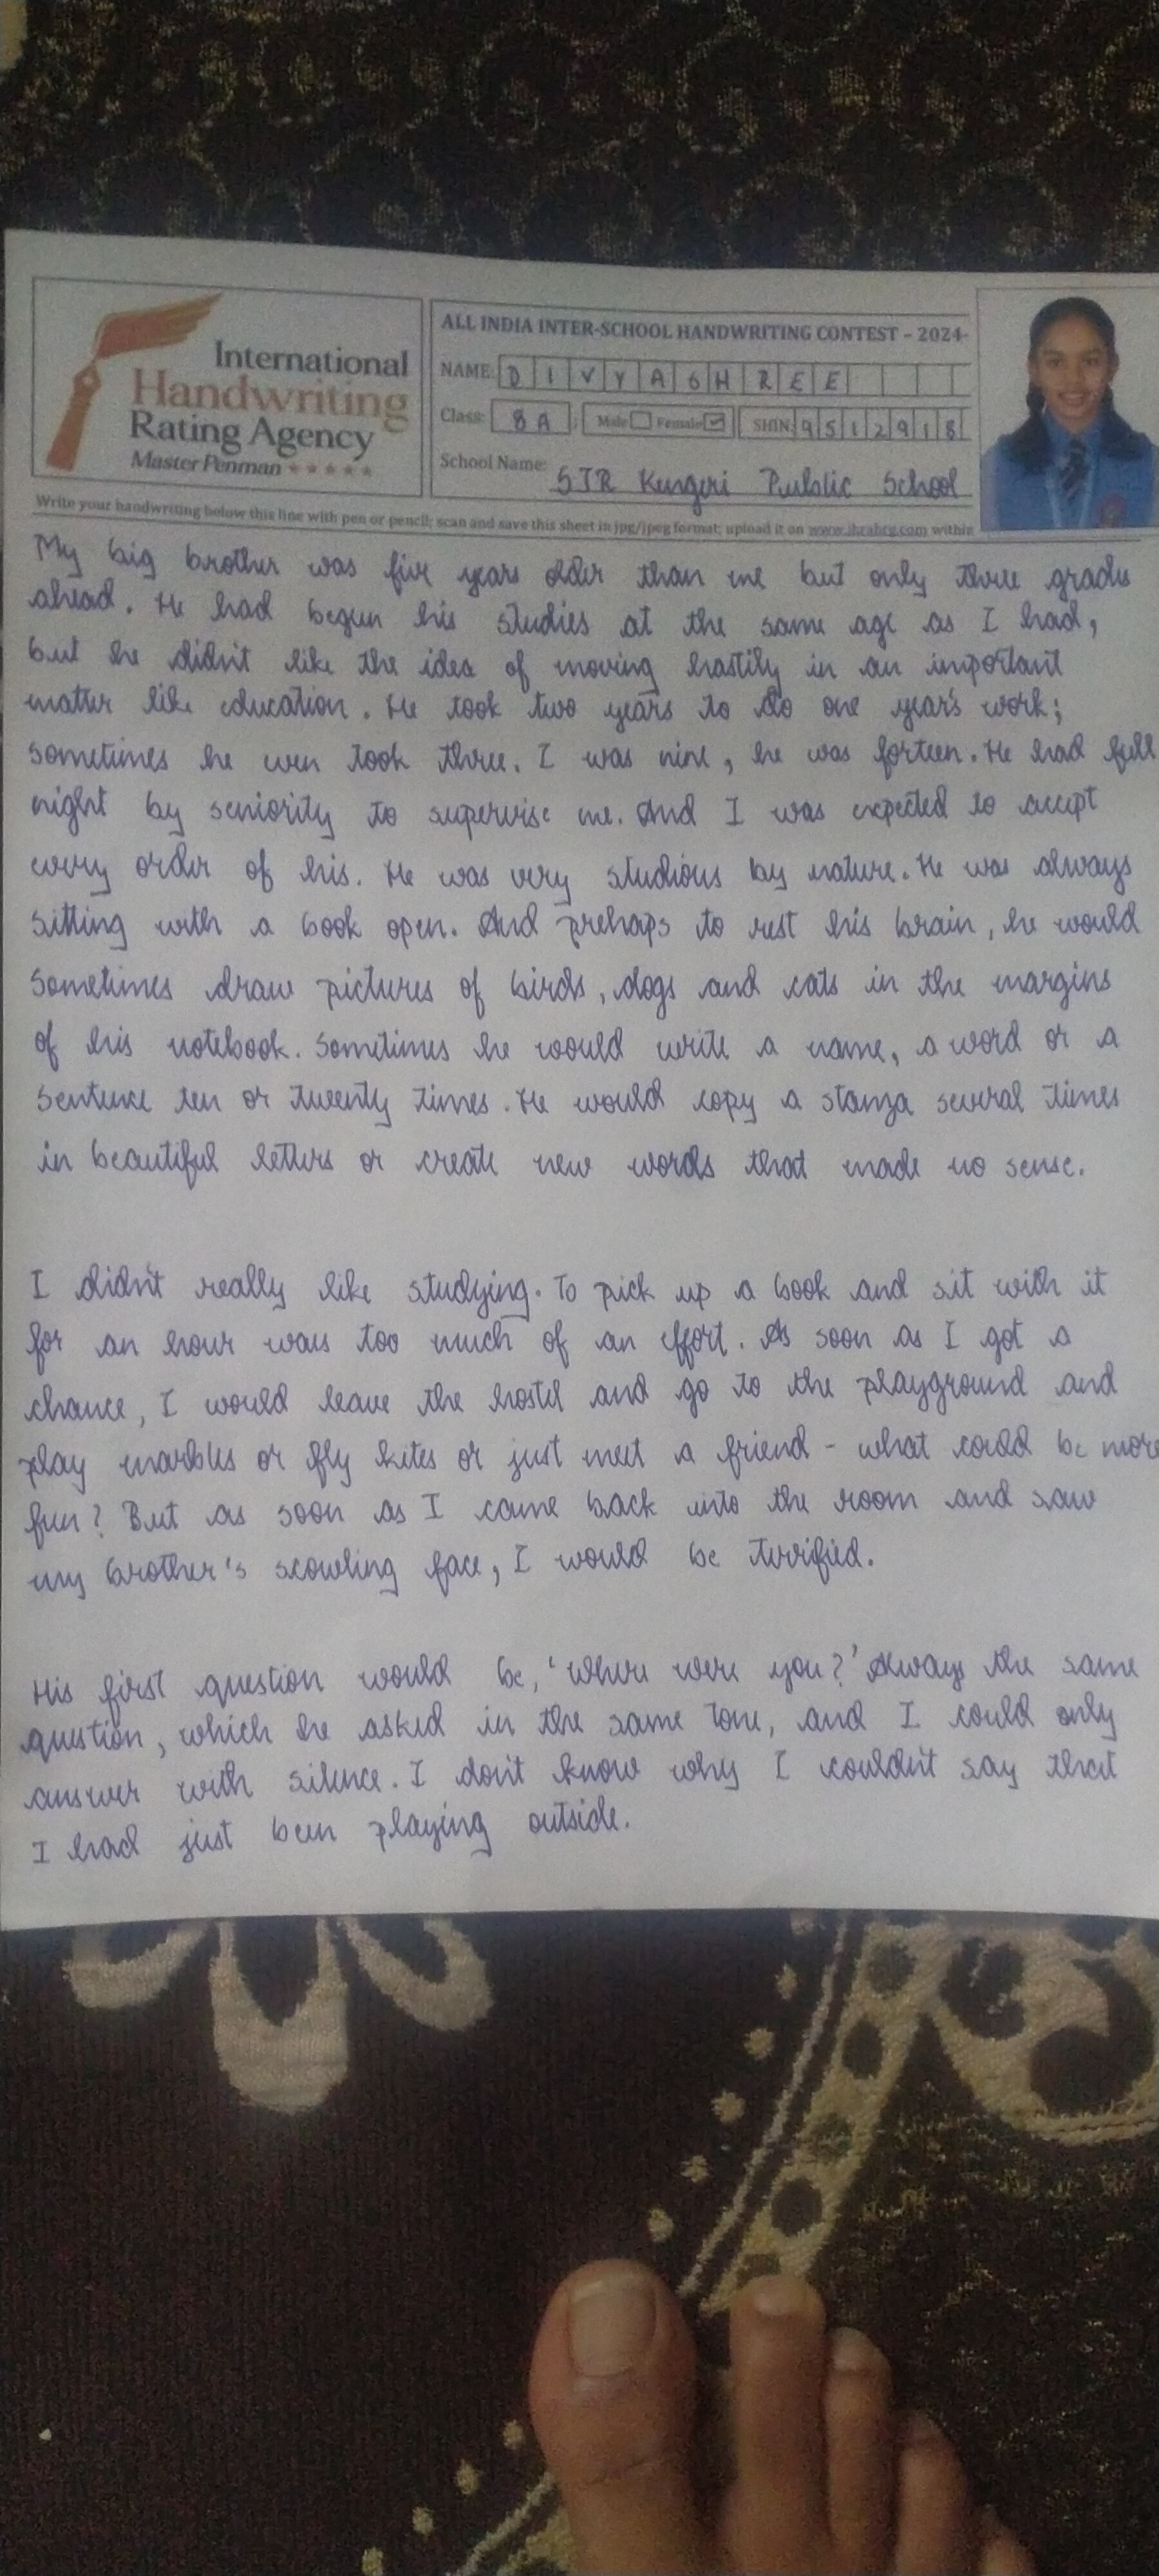 International
Handwriting
Rating Agency
Master Penman
ALL INDIA INTER-SCHOOL HANDWRITING CONTEST - 2024-
NAME: DIVYASHREE
Class: 8A Male Female SHIN: 9512918
School Name: SJR Kengeri Public School
Write your handwriting below this line with pen or pencil; scan and save this sheet in jpg/jpeg format; upload it on www.ihrahrg.com within
My big brother was five years older than me but only three grades
ahead. He had begun his studies at the same age as I had,
but he didn't like the idea of moving hastily in an important
matter like education. He took two years to do one year's work;
sometimes he even took three. I was nine, he was forteen. He had full
night by seniority to supervise me. And I was expected to accept
every order of his. He was very studious by nature. He was always
sitting with a book open. And prehaps to rest his brain, he would
sometimes draw pictures of birds, dogs and cats in the margins
of his notebook. Sometimes he would write a name, a word or a
sentence ten or twenty times. He would copy a stanza several times
in beautiful letters or create new words that made no sense.
I didn't really like studying. To pick up a book and sit with it
for an hour was too much of an effort. As soon as I got a
chance, I would leave the hostel and go to the playground and
play marbles or fly kites or just meet a friend - what could be more
fun? But as soon as I came back into the room and saw
my brother's scowling face, I would be terrified.
His first question would be, 'where were you?' Always the same
question, which he asked in the same tone, and I could only
answer with silence. I don't know why I couldn't say that
I had just been playing outside.